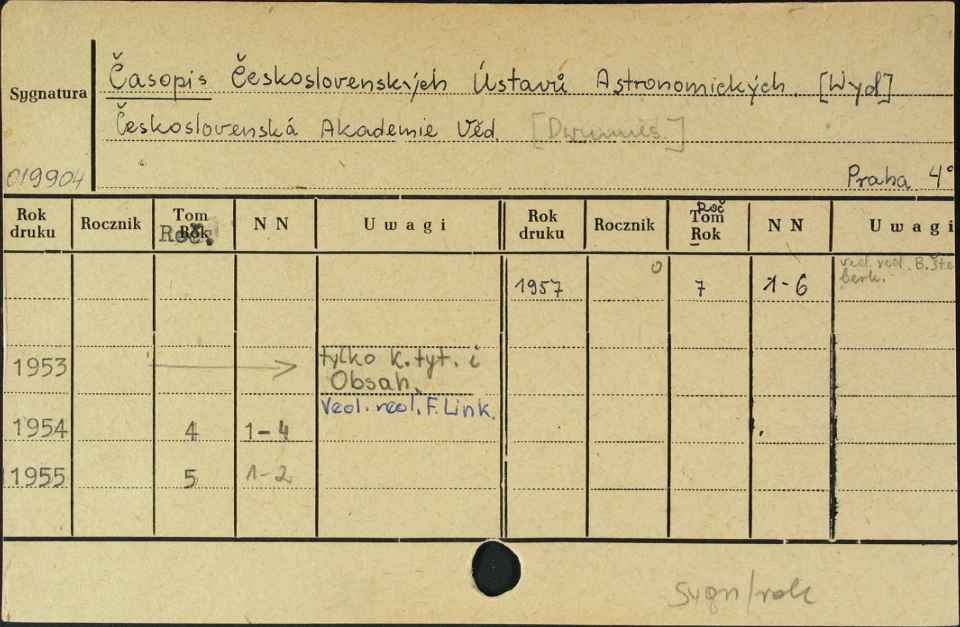 Sygnatura
Časopis Československých Ústavů Astronomických. [Wyd]
Československá Akademie Věd. [Dwumies.]
019904
Praha 4°
Rok druku Rocznik Tom Rok Roč. N N Uwagi Rok druku Rocznik Roč Tom Rok N N Uwagi
1957 0 7 1-6 ved. red. B. Šternberk.
1953 tylko k. tyt. i
Obsah.
Ved. red. F. Link.
1954 4 1-4
1955 5 1-2
sygn/rok